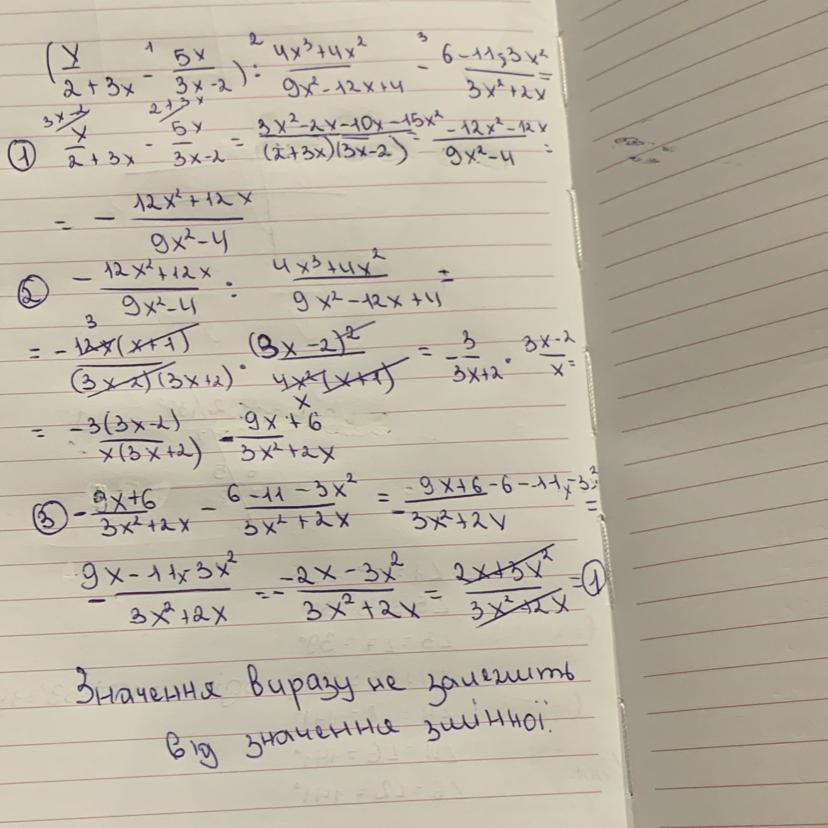 (x/(2+3x) -¹ 5x/(3x-2)) :² (4x³+4x²)/(9x²-12x+4) -³ (6-11-3x²)/(3x²+2x) =
① x/(2+3x) ^(3x-2) - 5x/(3x-2) ^(2+3x) = (3x²-2x-10x-15x²)/((2+3x)(3x-2)) = (-12x²-12x)/(9x²-4) =
= - (12x²+12x)/(9x²-4)
② - (12x²+12x)/(9x²-4) : (4x³+4x²)/(9x²-12x+4) =
= - (12x(x+1))/((3x-2)(3x+2)) · (3x-2)²/(4x²(x+1)) = - 3/(3x+2) · (3x-2)/x =
= (-3(3x-2))/(x(3x+2)) - (9x+6)/(3x²+2x)
③ - (9x+6)/(3x²+2x) - (6-11-3x²)/(3x²+2x) = - (9x+6-6-11x-3x²)/(3x²+2x) =
- (9x-11x-3x²)/(3x²+2x) = - (-2x-3x²)/(3x²+2x) = (2x+3x²)/(3x²+2x) = ①
Значення виразу не залежить
від значення змінної.